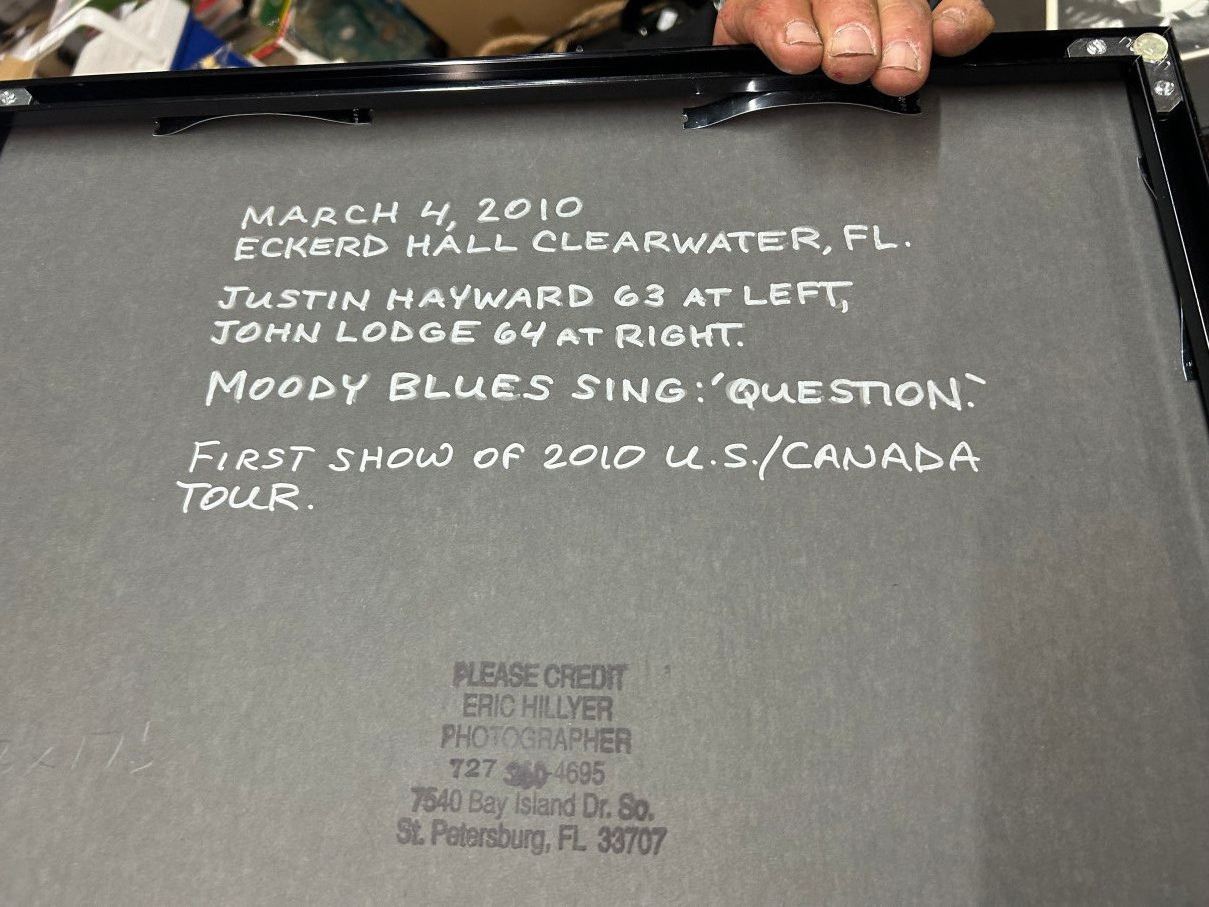 MARCH 4, 2010
ECKERD HALL CLEARWATER, FL.
JUSTIN HAYWARD 63 AT LEFT,
JOHN LODGE 64 AT RIGHT.
MOODY BLUES SING: 'QUESTION.'
FIRST SHOW OF 2010 U.S./CANADA
TOUR.
PLEASE CREDIT
ERIC HILLYER
PHOTOGRAPHER
727 360-4695
7540 Bay Island Dr. So.
St. Petersburg, FL 33707